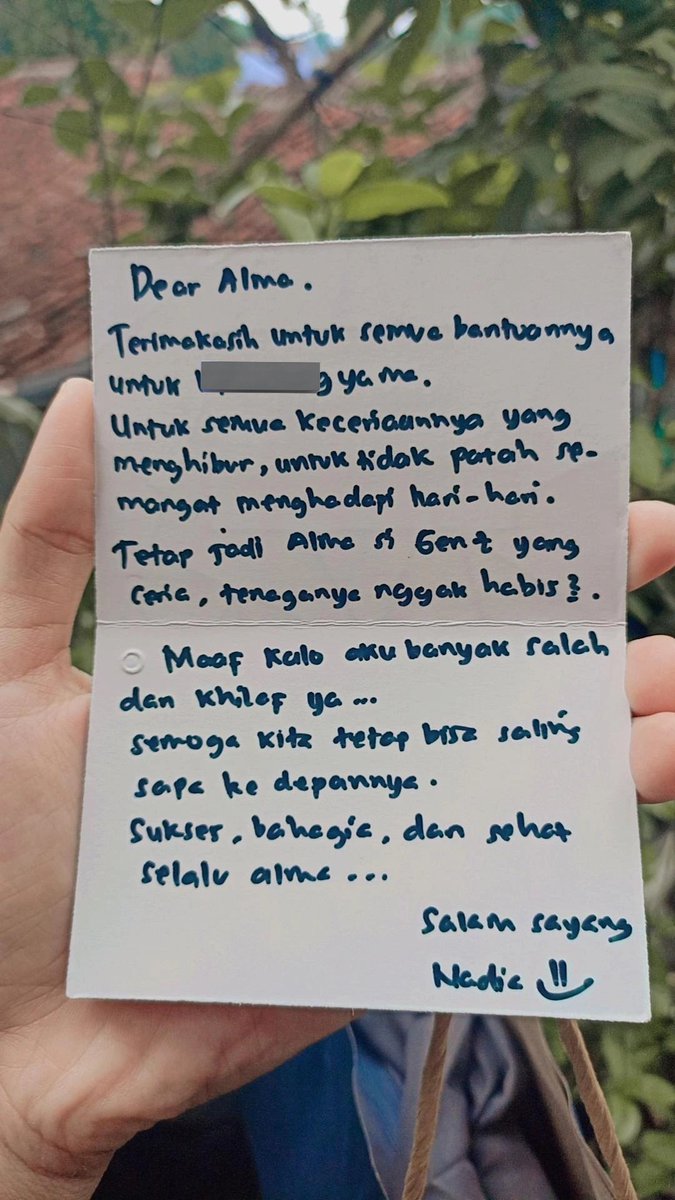 Dear Alma.
Terimakasih untuk semua bantuannya
untuk yama.
Untuk semua keceriaannya yang
menghibur, untuk tidak patah se-
mangat menghadapi hari-hari.
Tetap jadi Alma si Gen Z yang
ceria, tenaganya nggak habis2.
Maaf kalo aku banyak salah
dan khilaf ya...
semoga kita tetap bisa saling
sapa ke depannya.
Sukses, bahagia, dan sehat
selalu alma...
Salam sayang
Nadia